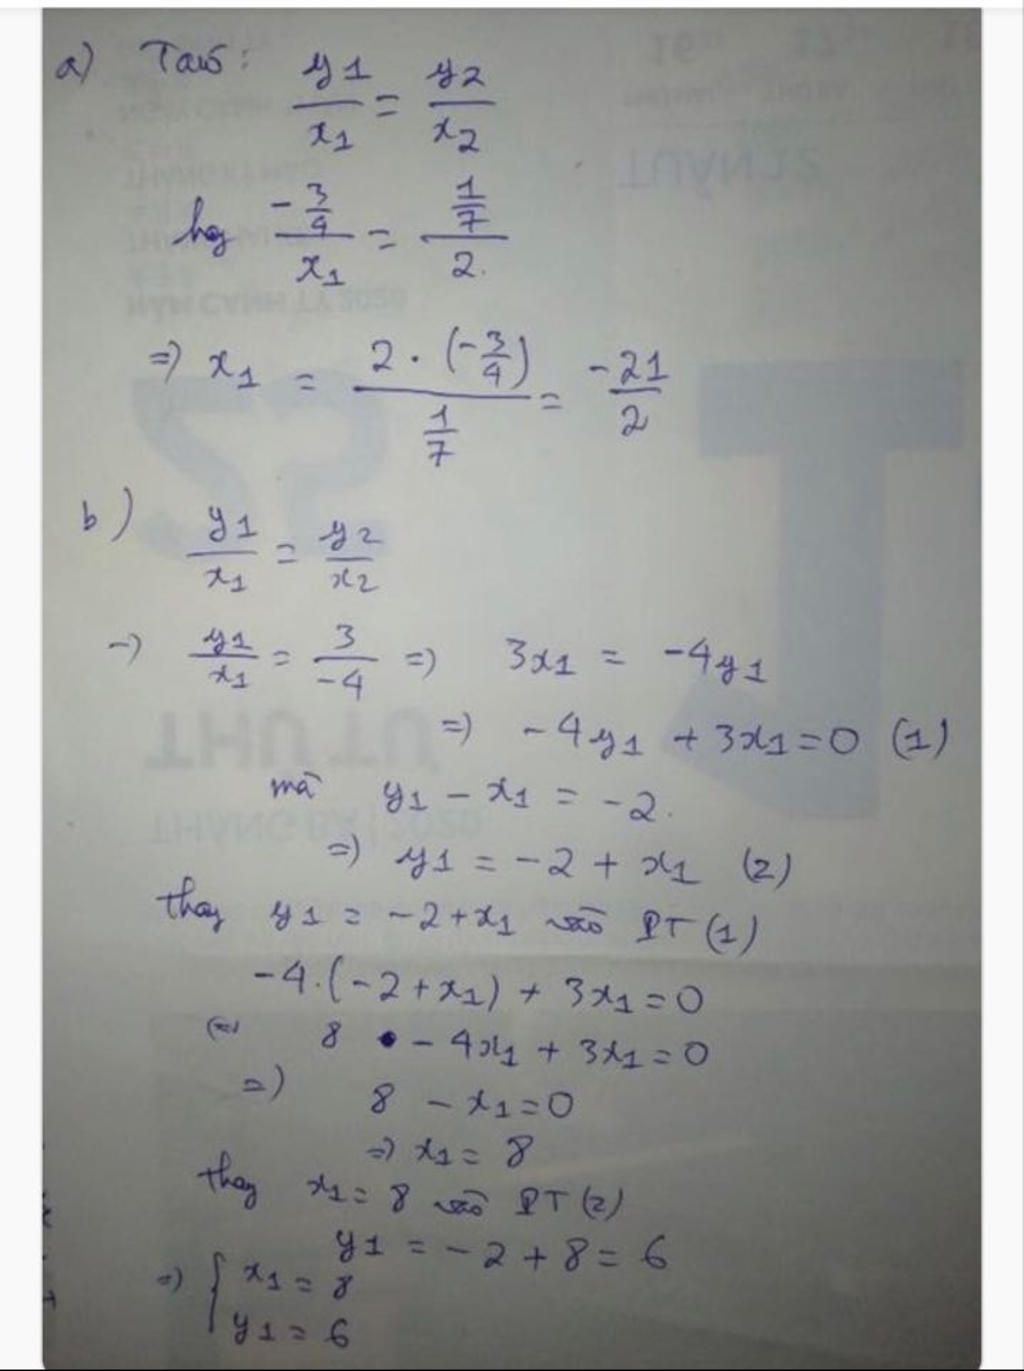 a) Ta có: y1/x1 = y2/x2
hay (-3/4)/x1 = (1/7)/2.
=) x1 = (2 . (-3/4))/(1/7) = -21/2
b) y1/x1 = y2/x2
-) y1/x1 = 3/-4 =) 3x1 = -4y1
=) -4y1 + 3x1 = 0 (1)
mà y1 - x1 = -2.
=) y1 = -2 + x1 (2)
thay y1 = -2 + x1 vào PT (1)
-4.(-2 + x1) + 3x1 = 0
(=) 8 - 4x1 + 3x1 = 0
=) 8 - x1 = 0
=) x1 = 8
thay x1 = 8 vào PT (2)
y1 = -2 + 8 = 6
=) { x1 = 8
y1 = 6